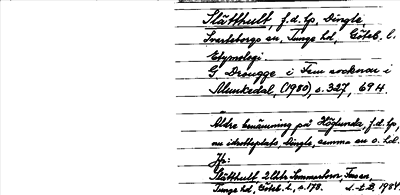 Slätthult, f.d. lp, Dingle,
Svarteborgs sn, Tunge hd, Göteb. l.
Etymologi.
G. Drougge i Fem socknar i
Munkedal, (1980), s. 327, 694.
Äldre benämning på Höglunda, f.d. lp,
nu idrottsplats, Dingle, samma sn o. hd.
Jfr:
Slätthult 2 lätt Sommartorn,
Tunge hd, Göteb. l., s. 178. 1984